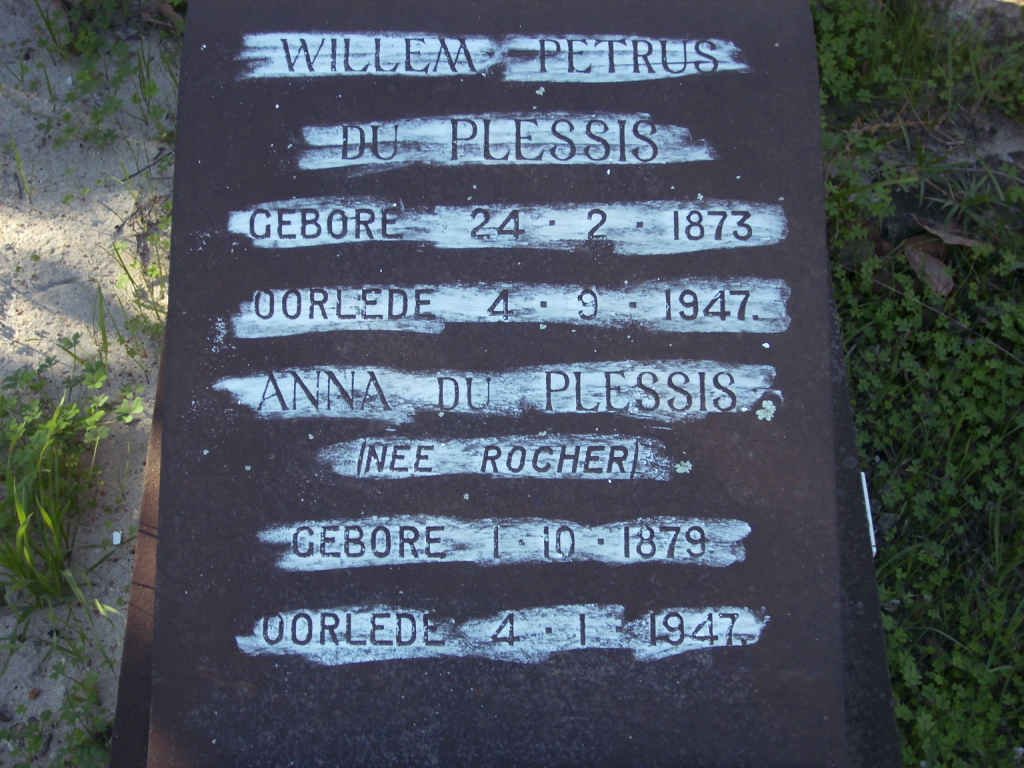 WILLEM PETRUS
DU PLESSIS
GEBORE 24 · 2 · 1873
OORLEDE 4 · 9 · 1947.
ANNA DU PLESSIS
/NEE ROCHER/
GEBORE 1 · 10 · 1879
OORLEDE 4 · 1 · 1947.